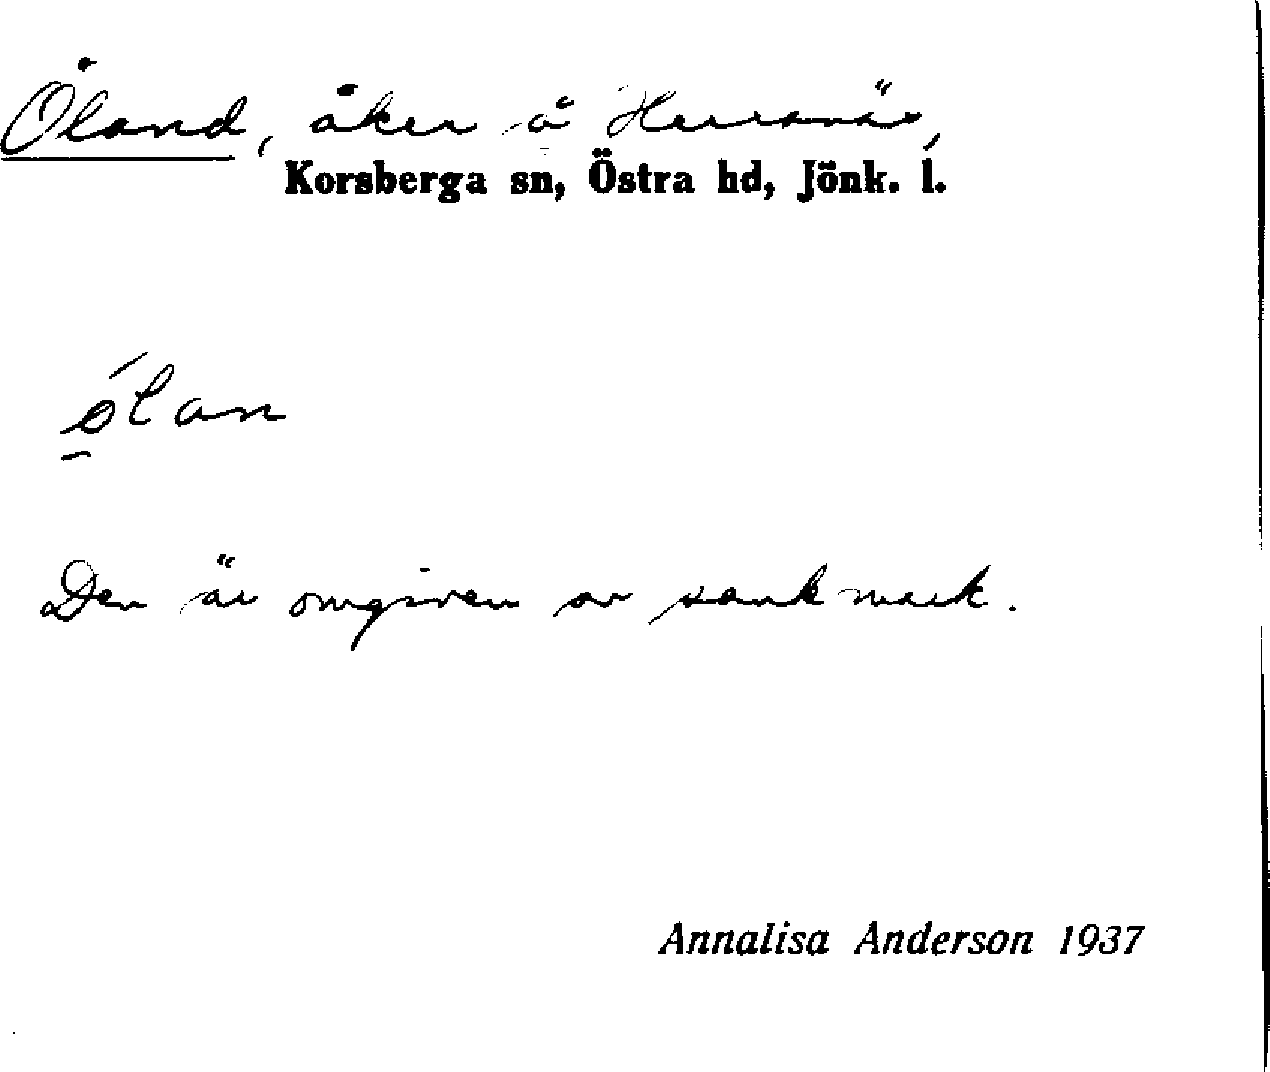 Öland, åker å Herranäs,
Korsberga sn, Östra hd, Jönk. l.
ölan
Den är omgiven av sank mark.
Annalisa Anderson 1937